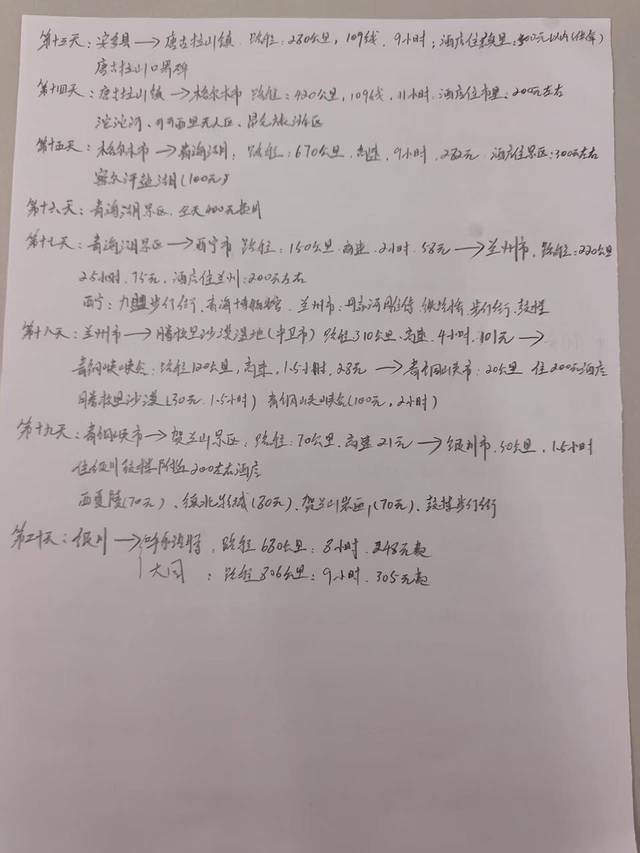 第十三天：安多县→唐古拉山镇 路程：280公里，109线，9小时；酒店住镇里：300元以内(住宿)
唐古拉山口界碑
第十四天：唐古拉山镇→格尔木市 路程：420公里，109线，11小时 酒店住市里：200元左右
沱沱河、可可西里无人区、昆仑旅游区
第十五天：格尔木市→青海湖：路程：670公里、高速、9小时、282元 酒店住景区：300元左右
察尔汗盐湖(100元)
第十六天：青海湖景区、全天400元费用
第十七天：青海湖景区→西宁市 路程：150公里、高速、2小时、58元→兰州市，路程：220公里
2.5小时、75元，酒店住兰州：200元左右
西宁：力盟步行街、青海博物馆 兰州市：步行街、鼓楼
第十八天：兰州市→腾格里沙漠湿地(中卫市) 路程310公里、高速、4小时、101元→
青铜峡峡谷：路程120公里，高速，1.5小时，28元→青铜峡市：20公里 住200元酒店
腾格里沙漠(30元 1.5小时) 青铜峡峡谷(100元，2小时)
第十九天：青铜峡市→贺兰山景区，路程：70公里、高速21元→银川市、50公里，1.5小时
住银川鼓楼附近200左右酒店
西夏陵(70元)、镇北影城(80元)、贺兰山岩画(70元)、鼓楼步行街
第二十天：银川→呼和浩特，路程680公里：8小时、248元起
大同：路程806公里：9小时、305元起